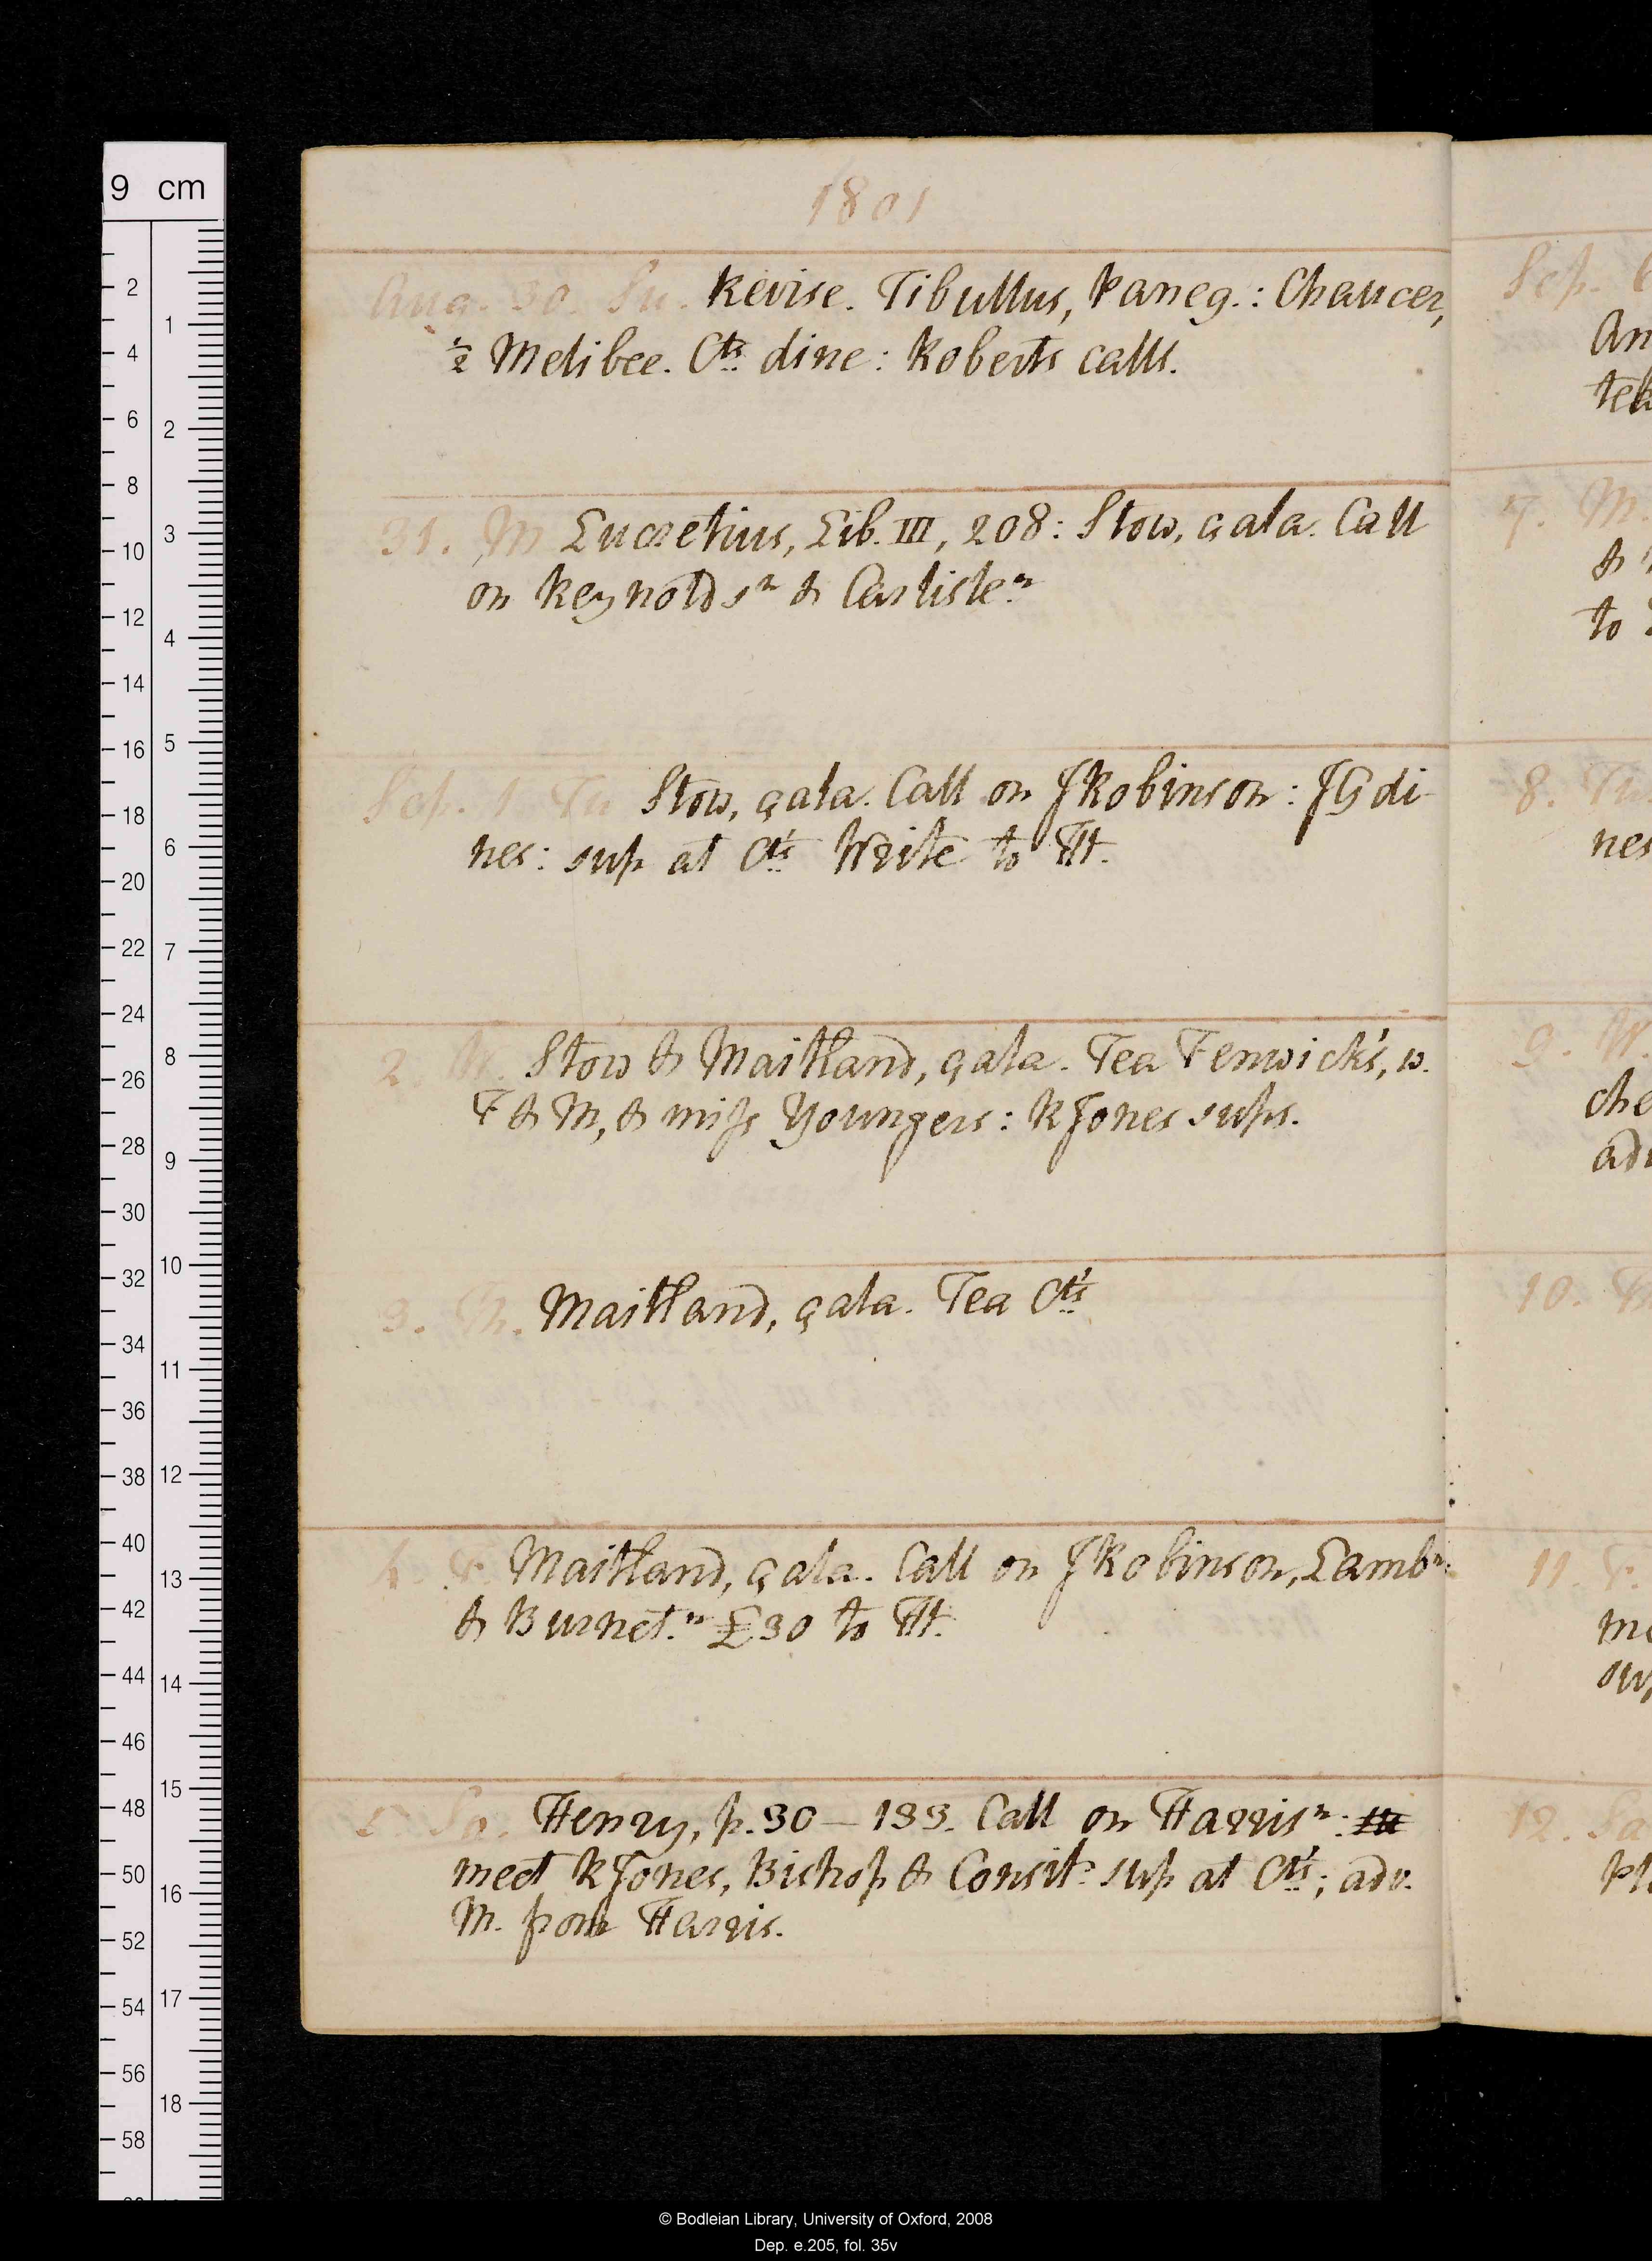 1801
Aug. 30. Su. Revise. Tibullus, Paneg.: Chaucer,
½ Melibee. Cts dine: Roberts calls.
31. M Lucretius, Lib. III, 208: Stow, çala. Call
on Reynolds n & Carlisle n
Sep. 1. Tu Stow, çala. Call on JRobinson: JG di-
nes: sup at Ct's Write to Ht.
2. W. Stow & Maitland, çala. Tea Fenwick's, w.
F & M, & miss Youngers: RJones sups.
3. Th. Maitland, çala. Tea Ct's
4. F. Maitland, çala. Call on JRobinson, Lamb n.
& Burnet. n £30 to Ht.
5 Sa. Henry, p. 30 – 133. Call on Harris n:
meet RJones, Bishop & Consite sup at Ct's; adv.
M. from Harris.
Sep. 6
An
tek
7. M.
&
to
8. Tu
nes
9. W.
che
adv
10. Th
11. F.
me
sup
12. Sa
Ph
9 cm
2
4
6
8
10
12
14
16
18
20
22
24
26
28
30
32
34
36
38
40
42
44
46
48
50
52
54
56
58
1
2
3
4
5
6
7
8
9
10
11
12
13
14
15
16
17
18
© Bodleian Library, University of Oxford, 2008
Dep. e.205, fol. 35v